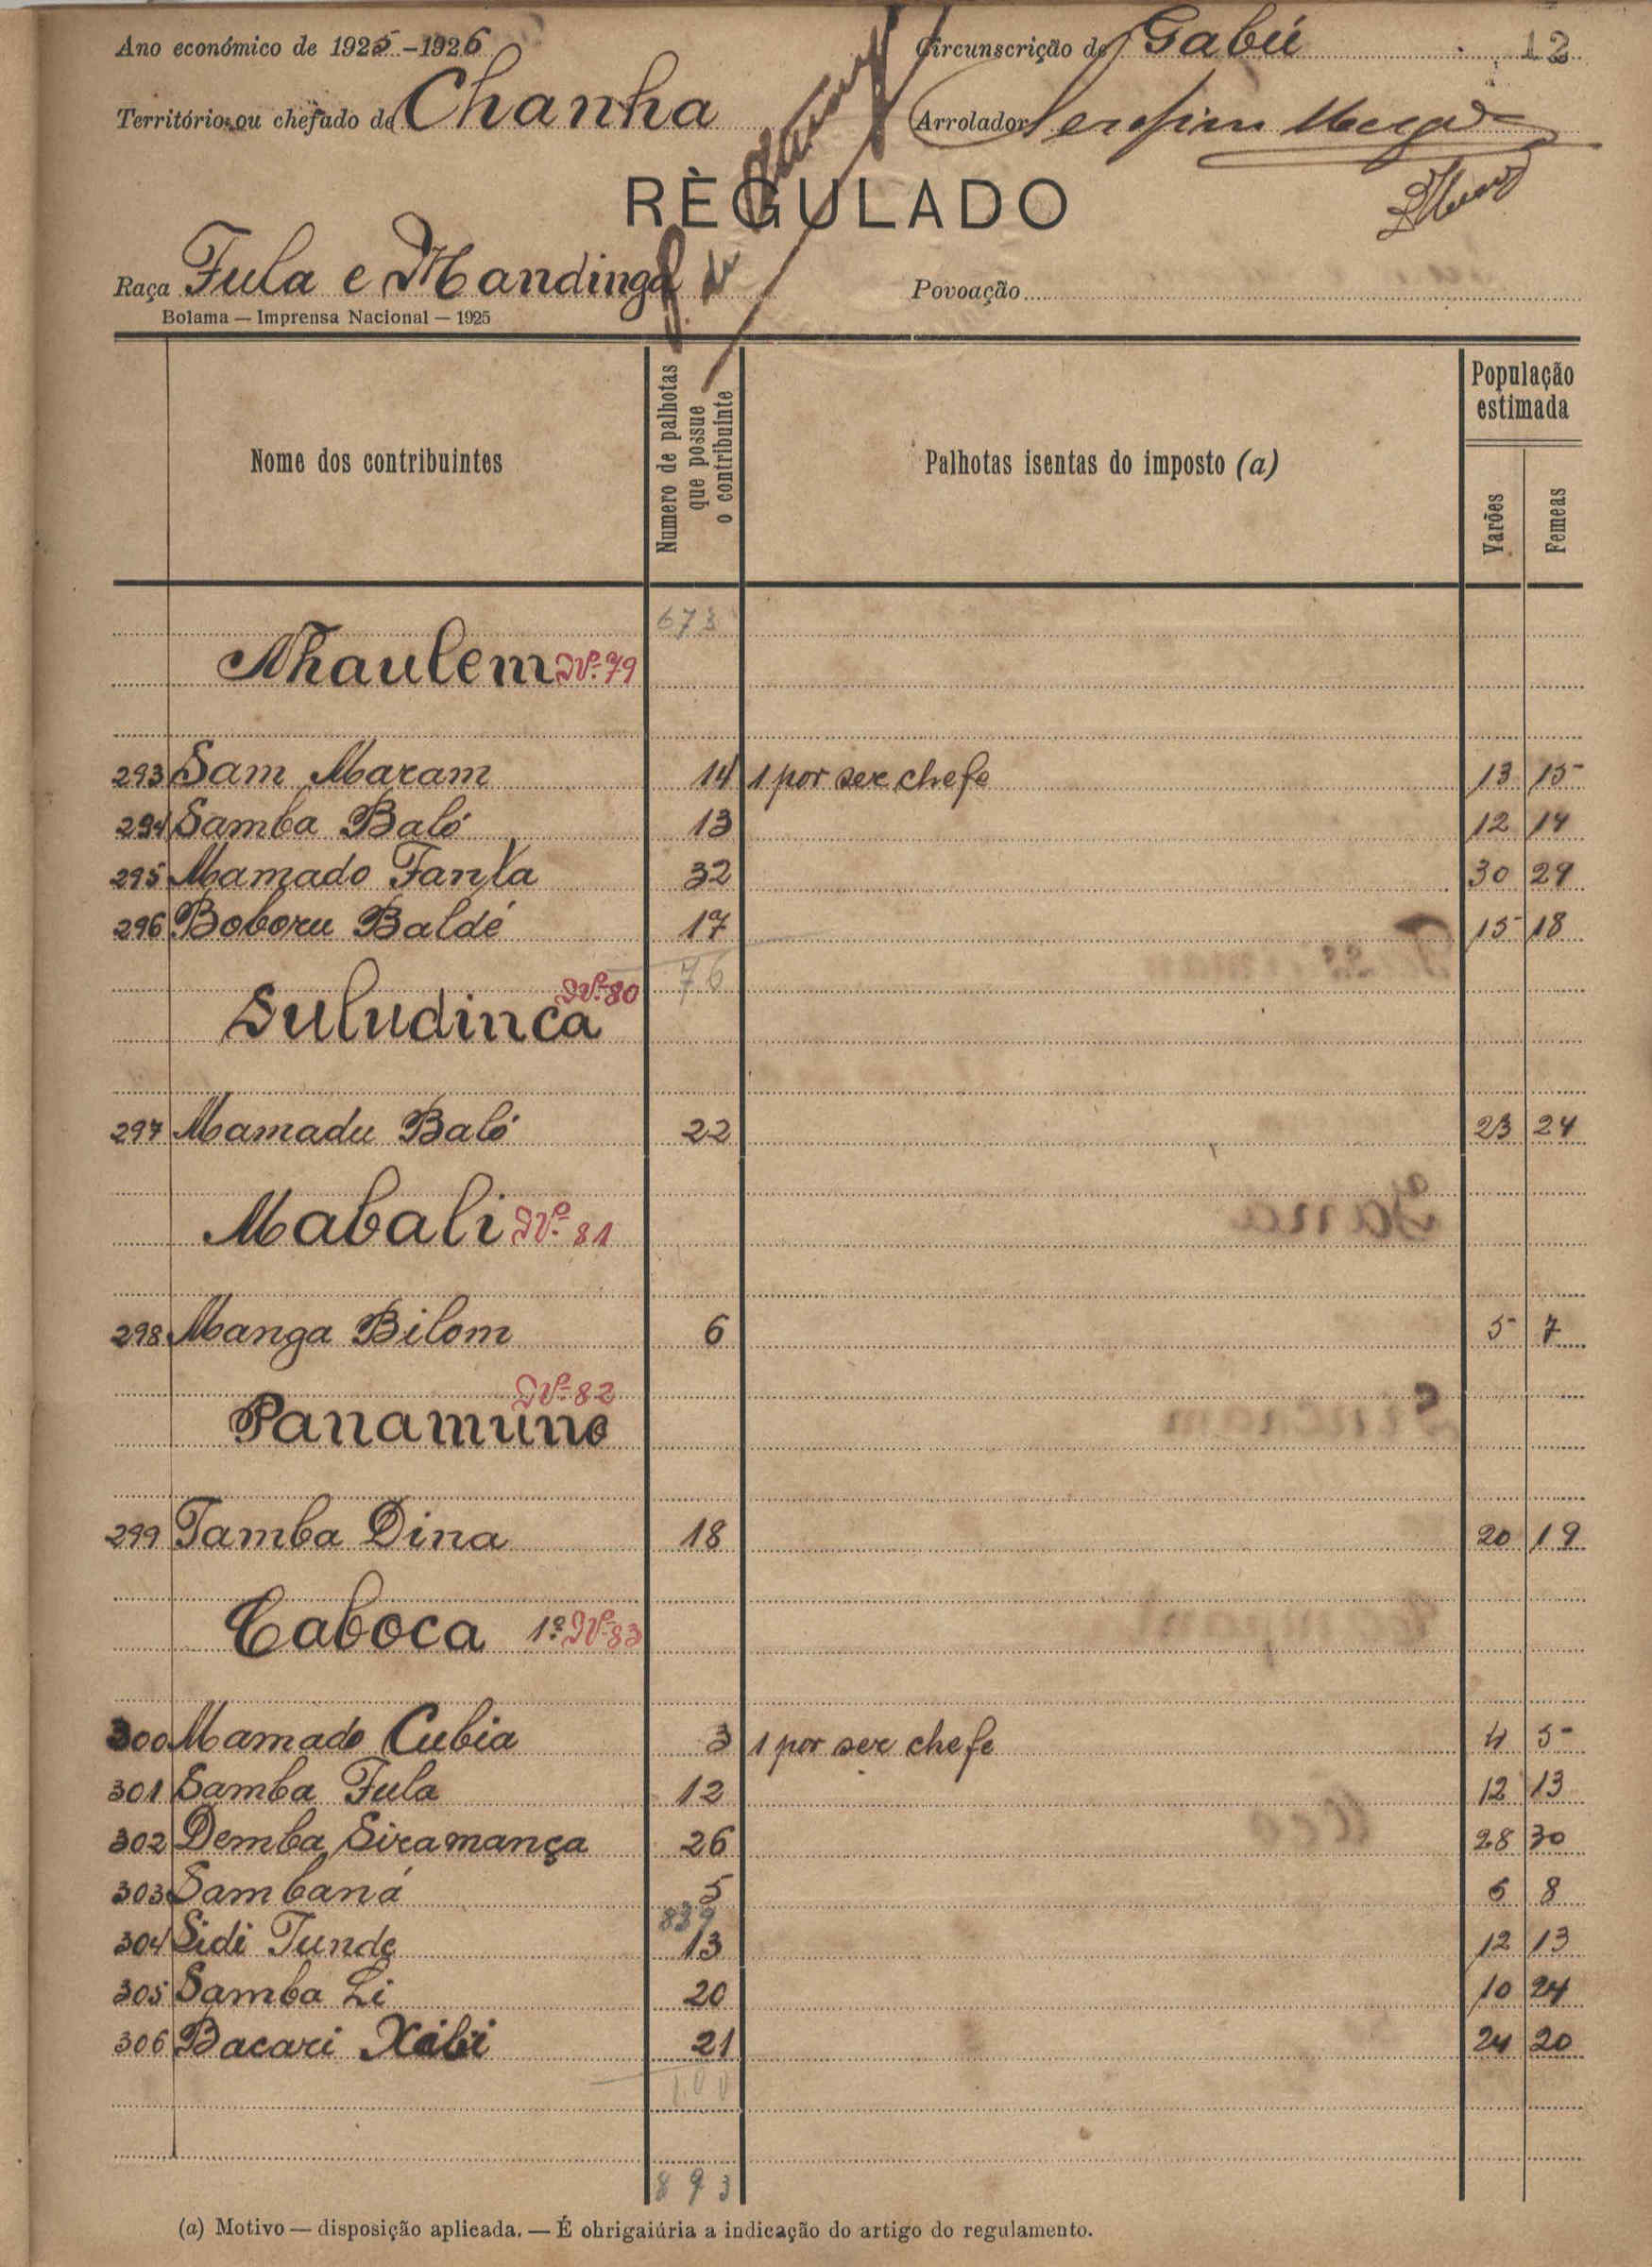 Ano económico de 1925-1926 Circunscrição de Gabú 12
Território ou chefado de Chanha Arrolador Serafim
RÈGULADO
Raça Fula e Mandinga Povoação
Bolama — Imprensa Nacional — 1925
Nome dos contribuintes
Numero de palhotas que possue o contribuinte
Palhotas isentas do imposto (a)
População estimada
Varões Femeas
673
Nhaulem Nº 79
293 Sam Maram 14 1 por ser chefe 13 15
294 Samba Baló 13 12 14
295 Mamado Fanta 32 30 29
296 Boboru Baldé 17 15 18
76
Nº 80
Suludinca
297 Mamadu Baló 22 23 24
Mabali Nº 81
298 Manga Bilom 6 5 7
Nº 82
Panamuno
299 Tamba Dina 18 20 19
Caboca 1º Nº 83
300 Mamado Cubia 3 1 por ser chefe 4 5
301 Samba Fula 12 12 13
302 Demba Siramança 26 28 30
303 Sambaná 5 6 8
839
304 Sidi Tunde 13 12 13
305 Samba Li 20 10 24
306 Bacari Xibi 21 24 20
100
893
(a) Motivo — disposição aplicada. — É obrigaiúria a indicação do artigo do regulamento.